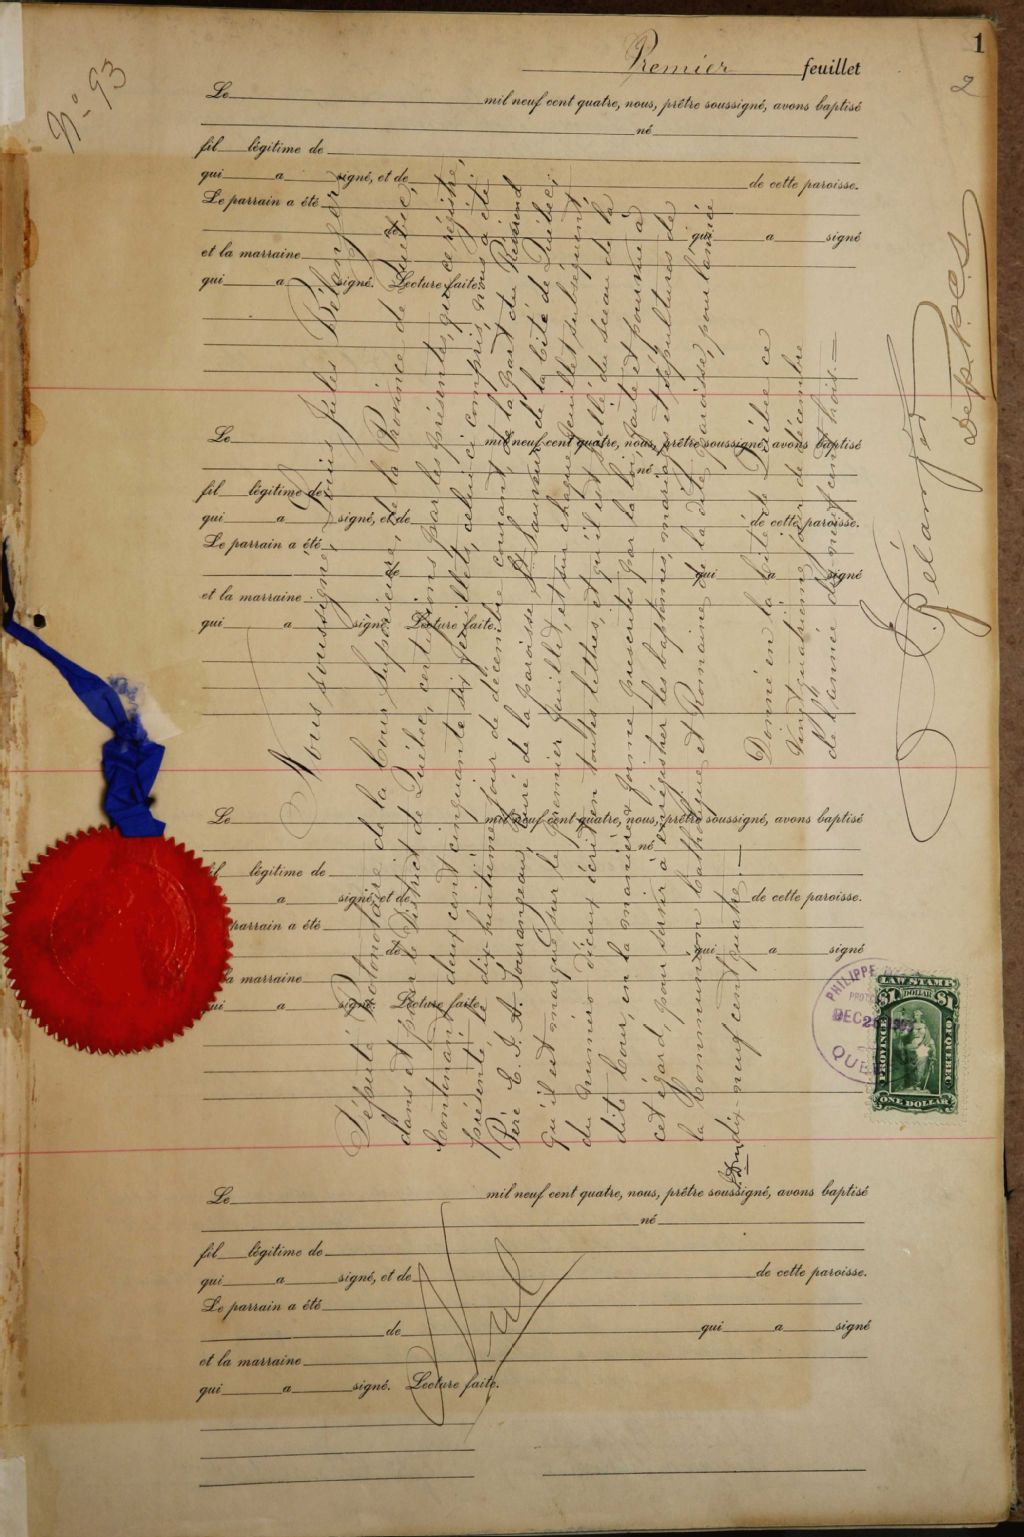 1
2
Nº 93
Premier feuillet
Le mil neuf cent quatre, nous, prêtre soussigné, avons baptisé
né
fil légitime de
qui a signé, et de de cette paroisse.
Le parrain a été
de qui a signé
et la marraine
qui a signé. Lecture faite.
Le mil neuf cent quatre, nous, prêtre soussigné, avons baptisé
né
fil légitime de
qui a signé, et de de cette paroisse.
Le parrain a été
de qui a signé
et la marraine
qui a signé. Lecture faite.
Le mil neuf cent quatre, nous, prêtre soussigné, avons baptisé
né
fil légitime de
a signé, et de de cette paroisse.
parrain a été
de qui a signé
la marraine
qui a signé. Lecture faite.
Le mil neuf cent quatre, nous, prêtre soussigné, avons baptisé
né
fil légitime de
qui a signé, et de de cette paroisse.
Le parrain a été
de qui a signé
et la marraine
qui a signé. Lecture faite.
Nous soussigné, Louis Jules Bélanger
Député Protonotaire de la Cour Supérieure, de la Province de Québec,
dans et pour le District de Québec, certifions par les présentes, que ce régistre,
Contenant deux cent cinquante six feuillets, celui ci compris, nous a été
présenté le dix-huitième jour de décembre courant, de la part du Révérend
Père E. J. A. Tourangeau, Curé de la paroisse St Sauveur de la Cité de Québec;
qu'il est marqué sur le premier feuillet, et sur chaque feuillet subséquent
du numéro d'iceux écrit en toutes lettres, et qu'il est scellé du sceau de la
dite Cour, en la manière & forme prescrites par la loi, faite et pourvue à
cet égard, pour servir à enrégistrer les baptêmes, mariages et sépultures de
la Communion Catholique et Romaine de la dite paroisse, pour l'année
dix-neuf cent quatre.—
Donné en la Cité de Québec ce
Vingt quatrième jour de décembre
de l'année dix neuf cent trois.—
L. J. Bélanger
Dep. P. C. S.
Nul
PHILIPPE
DEC 2
QUE
LAW STAMP
$1 DOLLAR $1
PROVINCE OF QUEBEC
ONE DOLLAR